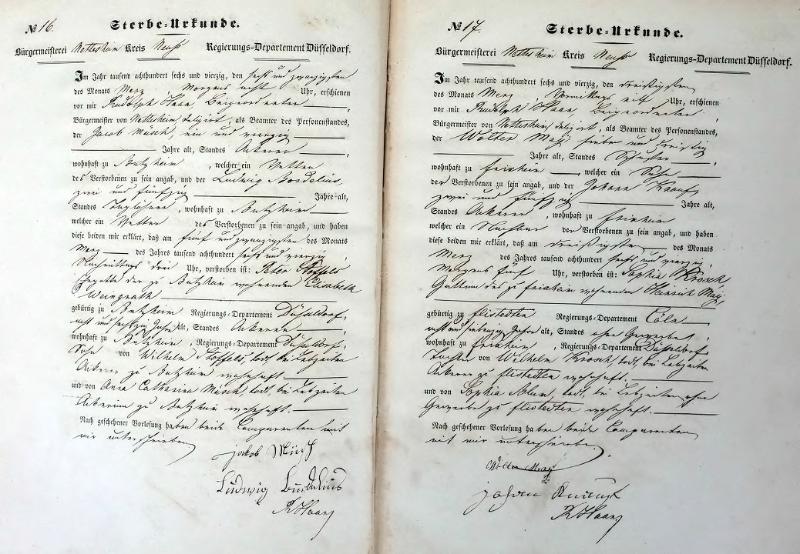 № 16.
Sterbe-Urkunde.
Bürgermeisterei Nettesheim Kreis Neuß Regierungs-Departement Düsseldorf.
Im Jahr tausend achthundert sechs und vierzig, den sechs und zwanzigsten
des Monats Merz Morgens acht Uhr, erschienen
vor mir Rudolph Haas, Beigeordneten
Bürgermeister von Nettesheim, delegirt, als Beamter des Personenstandes,
der Jacob Müsch, ein und vierzig
Jahre alt, Standes Ackerer
wohnhaft zu Butzheim, welcher ein Vetter
des Verstorbenen zu sein angab, und der Ludwig
zwei und fünfzig Jahre alt,
Standes Taglöhner, wohnhaft zu Butzheim
welcher ein Vetter des Verstorbenen zu sein angab, und haben
diese beiden mir erklärt, daß am fünf und zwanzigsten des Monats
Merz des Jahres tausend achthundert sechs und vierzig
Nachmittags drei Uhr, verstorben ist: Peter Stoffels
zu Butzheim wohnenden Elisabeth
gebürtig zu Butzheim Regierungs-Departement Düsseldorf,
acht und sechszig Jahre alt, Standes Ackerer
wohnhaft zu Butzheim, Regierungs-Departement Düsseldorf,
Sohn von Wilhelm Stoffels, todt, bei Lebzeiten
Ackerer zu Butzheim wohnhaft.
und von Anna Catharina Müsch, todt, bei Lebzeiten
Ackerin zu Butzheim wohnhaft.
Nach geschehener Vorlesung haben beide Comparenten
mit mir unterschrieben
Jakob Müsch
Ludwig
RHaas
№ 17.
Sterbe-Urkunde.
Bürgermeisterei Nettesheim Kreis Neuß Regierungs-Departement Düsseldorf.
Im Jahr tausend achthundert sechs und vierzig, den dreißigsten
des Monats Merz Vormittags elf Uhr, erschienen
vor mir Rudolph Haas Beigeordneten
Bürgermeister von Nettesheim, delegirt, als Beamter des Personenstandes,
der Wolter May sieben und dreißig
Jahre alt, Standes Schuster
wohnhaft zu Frixheim welcher ein Sohn
der Verstorbenen zu sein angab, und der Johann
zwei und fünfzig Jahre alt,
Standes Ackerer, wohnhaft zu Frixheim
welcher ein Nachbar der Verstorbenen zu sein angab, und haben
diese beiden mir erklärt, daß am dreißigsten des Monats
Merz des Jahres tausend achthundert sechs und vierzig,
Morgens fünf Uhr, verstorben ist: Sophia
Gattin des zu Frixheim wohnenden Heinrich May,
gebürtig zu Fliesteden Regierungs-Departement Cöln
Jahre alt, Standes ohne Gewerbe
wohnhaft zu Frixheim, Regierungs-Departement Düsseldorf
Tochter von Wilhelm todt, bei Lebzeiten
Ackerer zu Fliesteden wohnhaft.
und von Sophia todt, bei Lebzeiten ohne
Gewerbe zu Fliesteden wohnhaft.
Nach geschehener Vorlesung haben beide Comparenten
mit mir unterschrieben.
Wolter May
Johann
RHaas